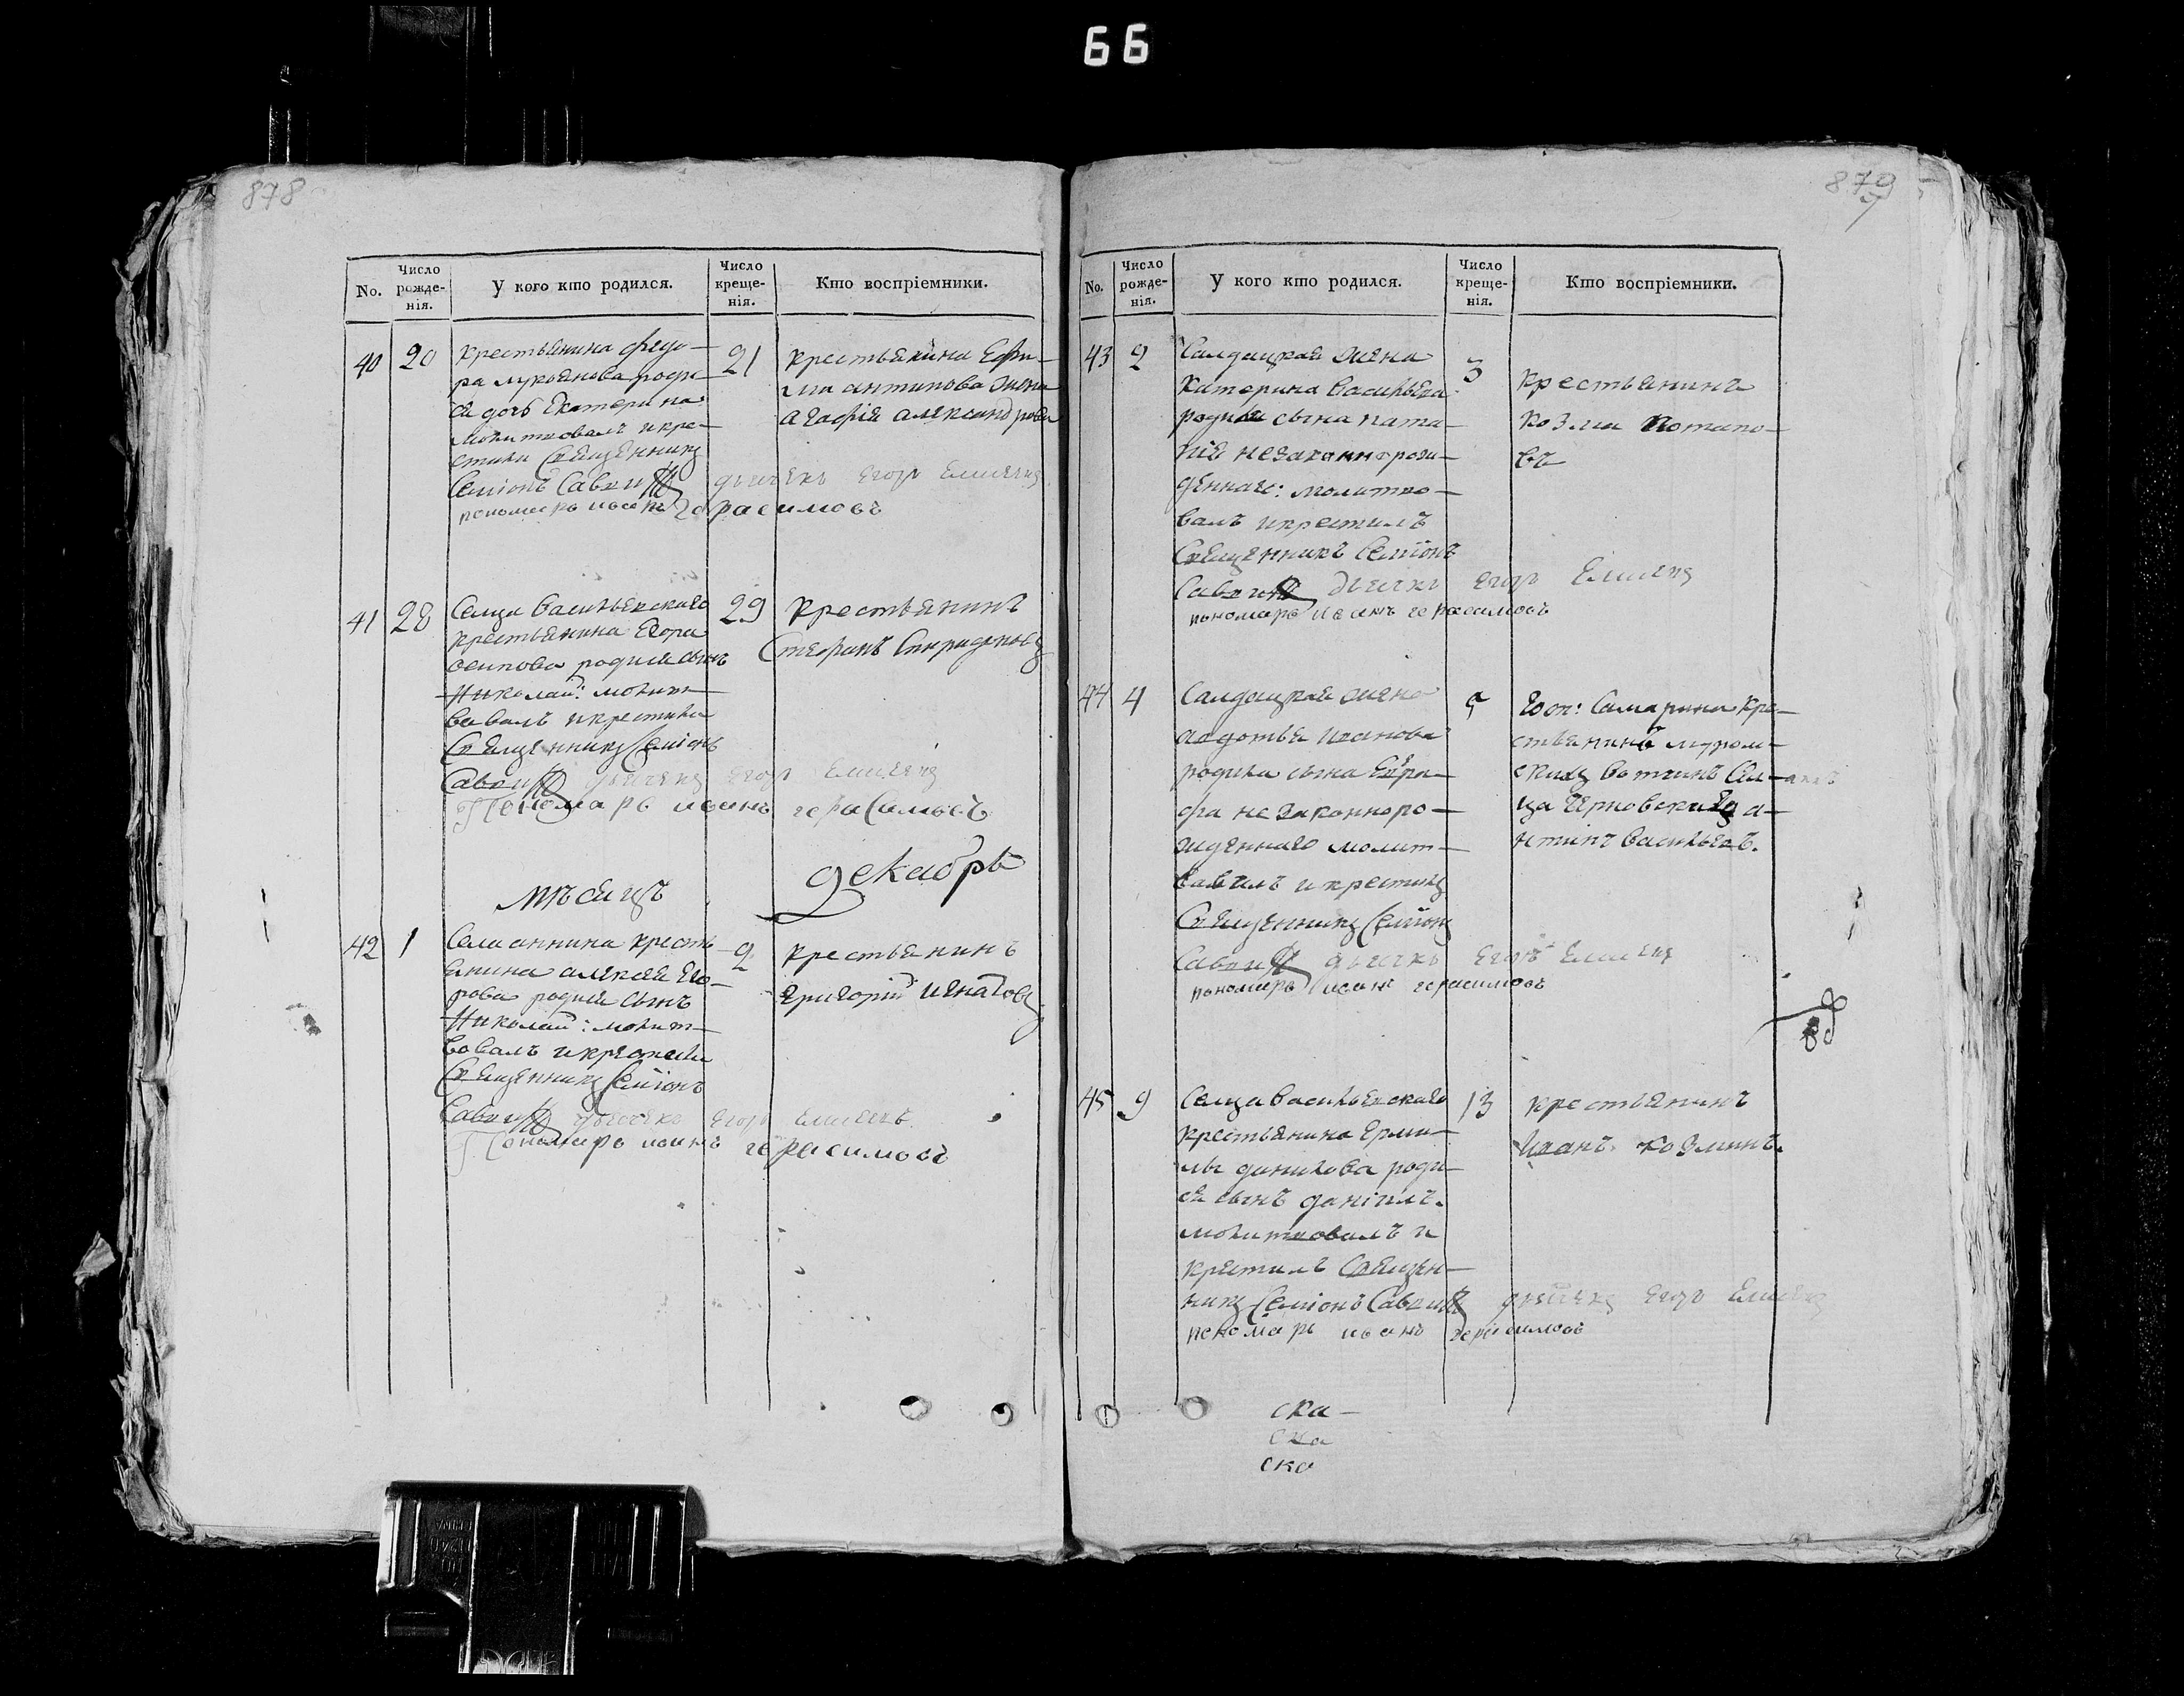 66
878
No.
Число рожде-нія.
У кого кто родился.
Число креще-нія.
Кто воспріемники.
40
20
крестьянина федо-
ра лукьянова роди-
ся дочь Екатерина
молитвовалъ и кре-
стилъ Священникъ
Семіонъ Саввинъ
дьячекъ Егоръ
пономарь иванъ герасимовъ
21
крестьянина Ефи-
ма антипова жена
агафія александрова
41
28
Селца васильевскаго
крестьянина Егора
осипова родися сынъ
Николай: молит-
вовалъ и крестилъ
Священникъ Семіонъ
Саввинъ дьячекъ Егоръ
Пономарь иванъ герасимовъ
29
крестьянинъ
Стефанъ Спиридоновъ
мѣсяцъ
декабрь
42
1
Села аннина кресть-
янина алексея Его-
рова родися сынъ
Николай: молит-
вовалъ и крестилъ
Священникъ Семіонъ
Саввинъ дьячекъ Егоръ
Пономарь иванъ герасимовъ
2
крестьянинъ
Григорій игнатовъ
879
No.
Число рожде-нія.
У кого кто родился.
Число креще-нія.
Кто воспріемники.
43
2
Салдацкая жена
катерина васильева
родила сына
незаконнорож-
деннаго: молитво-
валъ и крестилъ
Священникъ Семіонъ
Саввинъ дьячекъ Егоръ
пономарь иванъ герасимовъ
3
крестьянинъ
козма потапо-
въ
44
4
Салдацкая жена
авдотья иванова
родила сына
незаконноро-
жденнаго молит-
вавалъ и крестилъ
Священникъ Семіонъ
Саввинъ дьячекъ Егоръ
пономарь иванъ герасимовъ
5
госп: Самарина кре-
стьянинъ муром-
скихъ вотчинъ Сел-
ца Чорновскихъ а-
нтипъ васильевъ.
45
9
Селца васильевскаго
крестьянина Ерми-
лы данилова роди-
ся сынъ даніилъ.
молитвовалъ и
крестилъ Священ-
никъ Семіонъ Саввинъ дьячекъ Егоръ
пономарь иванъ герасимовъ
13
крестьянинъ
иванъ козминъ.
ска-
ска
ска